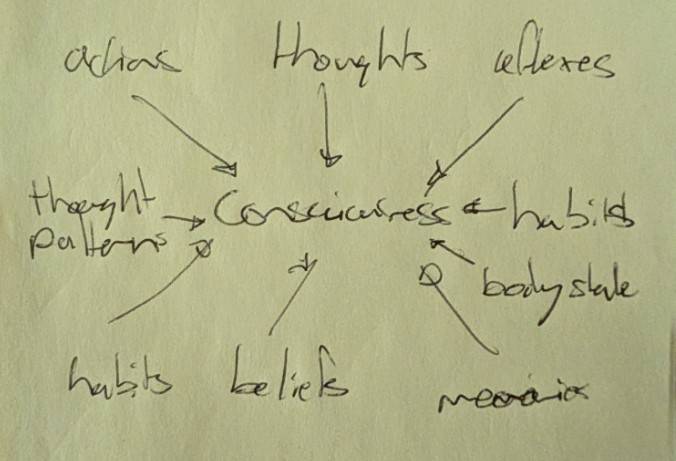 actions thoughts reflexes
thought
patterns
Consciousness
habits
body state
habits beliefs memories